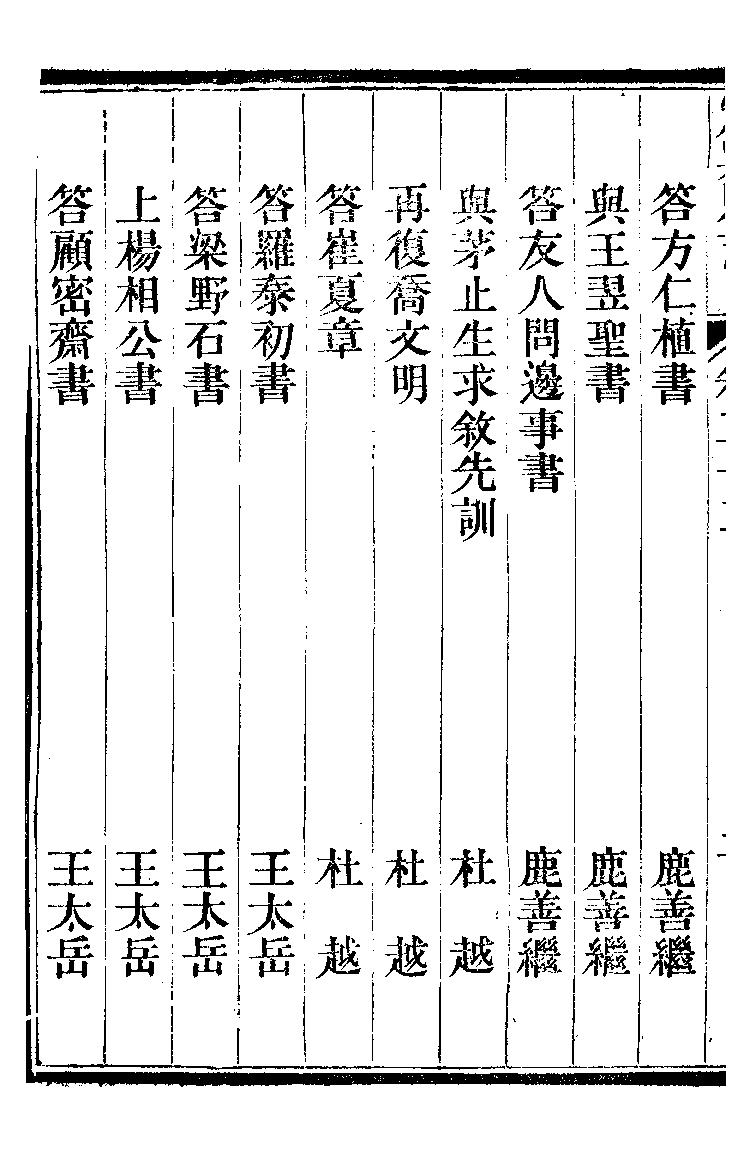 答方仁植書 鹿善繼
與王翌聖書 鹿善繼
答友人問邊事書 鹿善繼
與茅止生求敘先訓 杜越
再復喬文明 杜越
答崔夏章 杜越
答羅泰初書 王太岳
答梁野石書 王太岳
上楊相公書 王太岳
答顧密齋書 王太岳